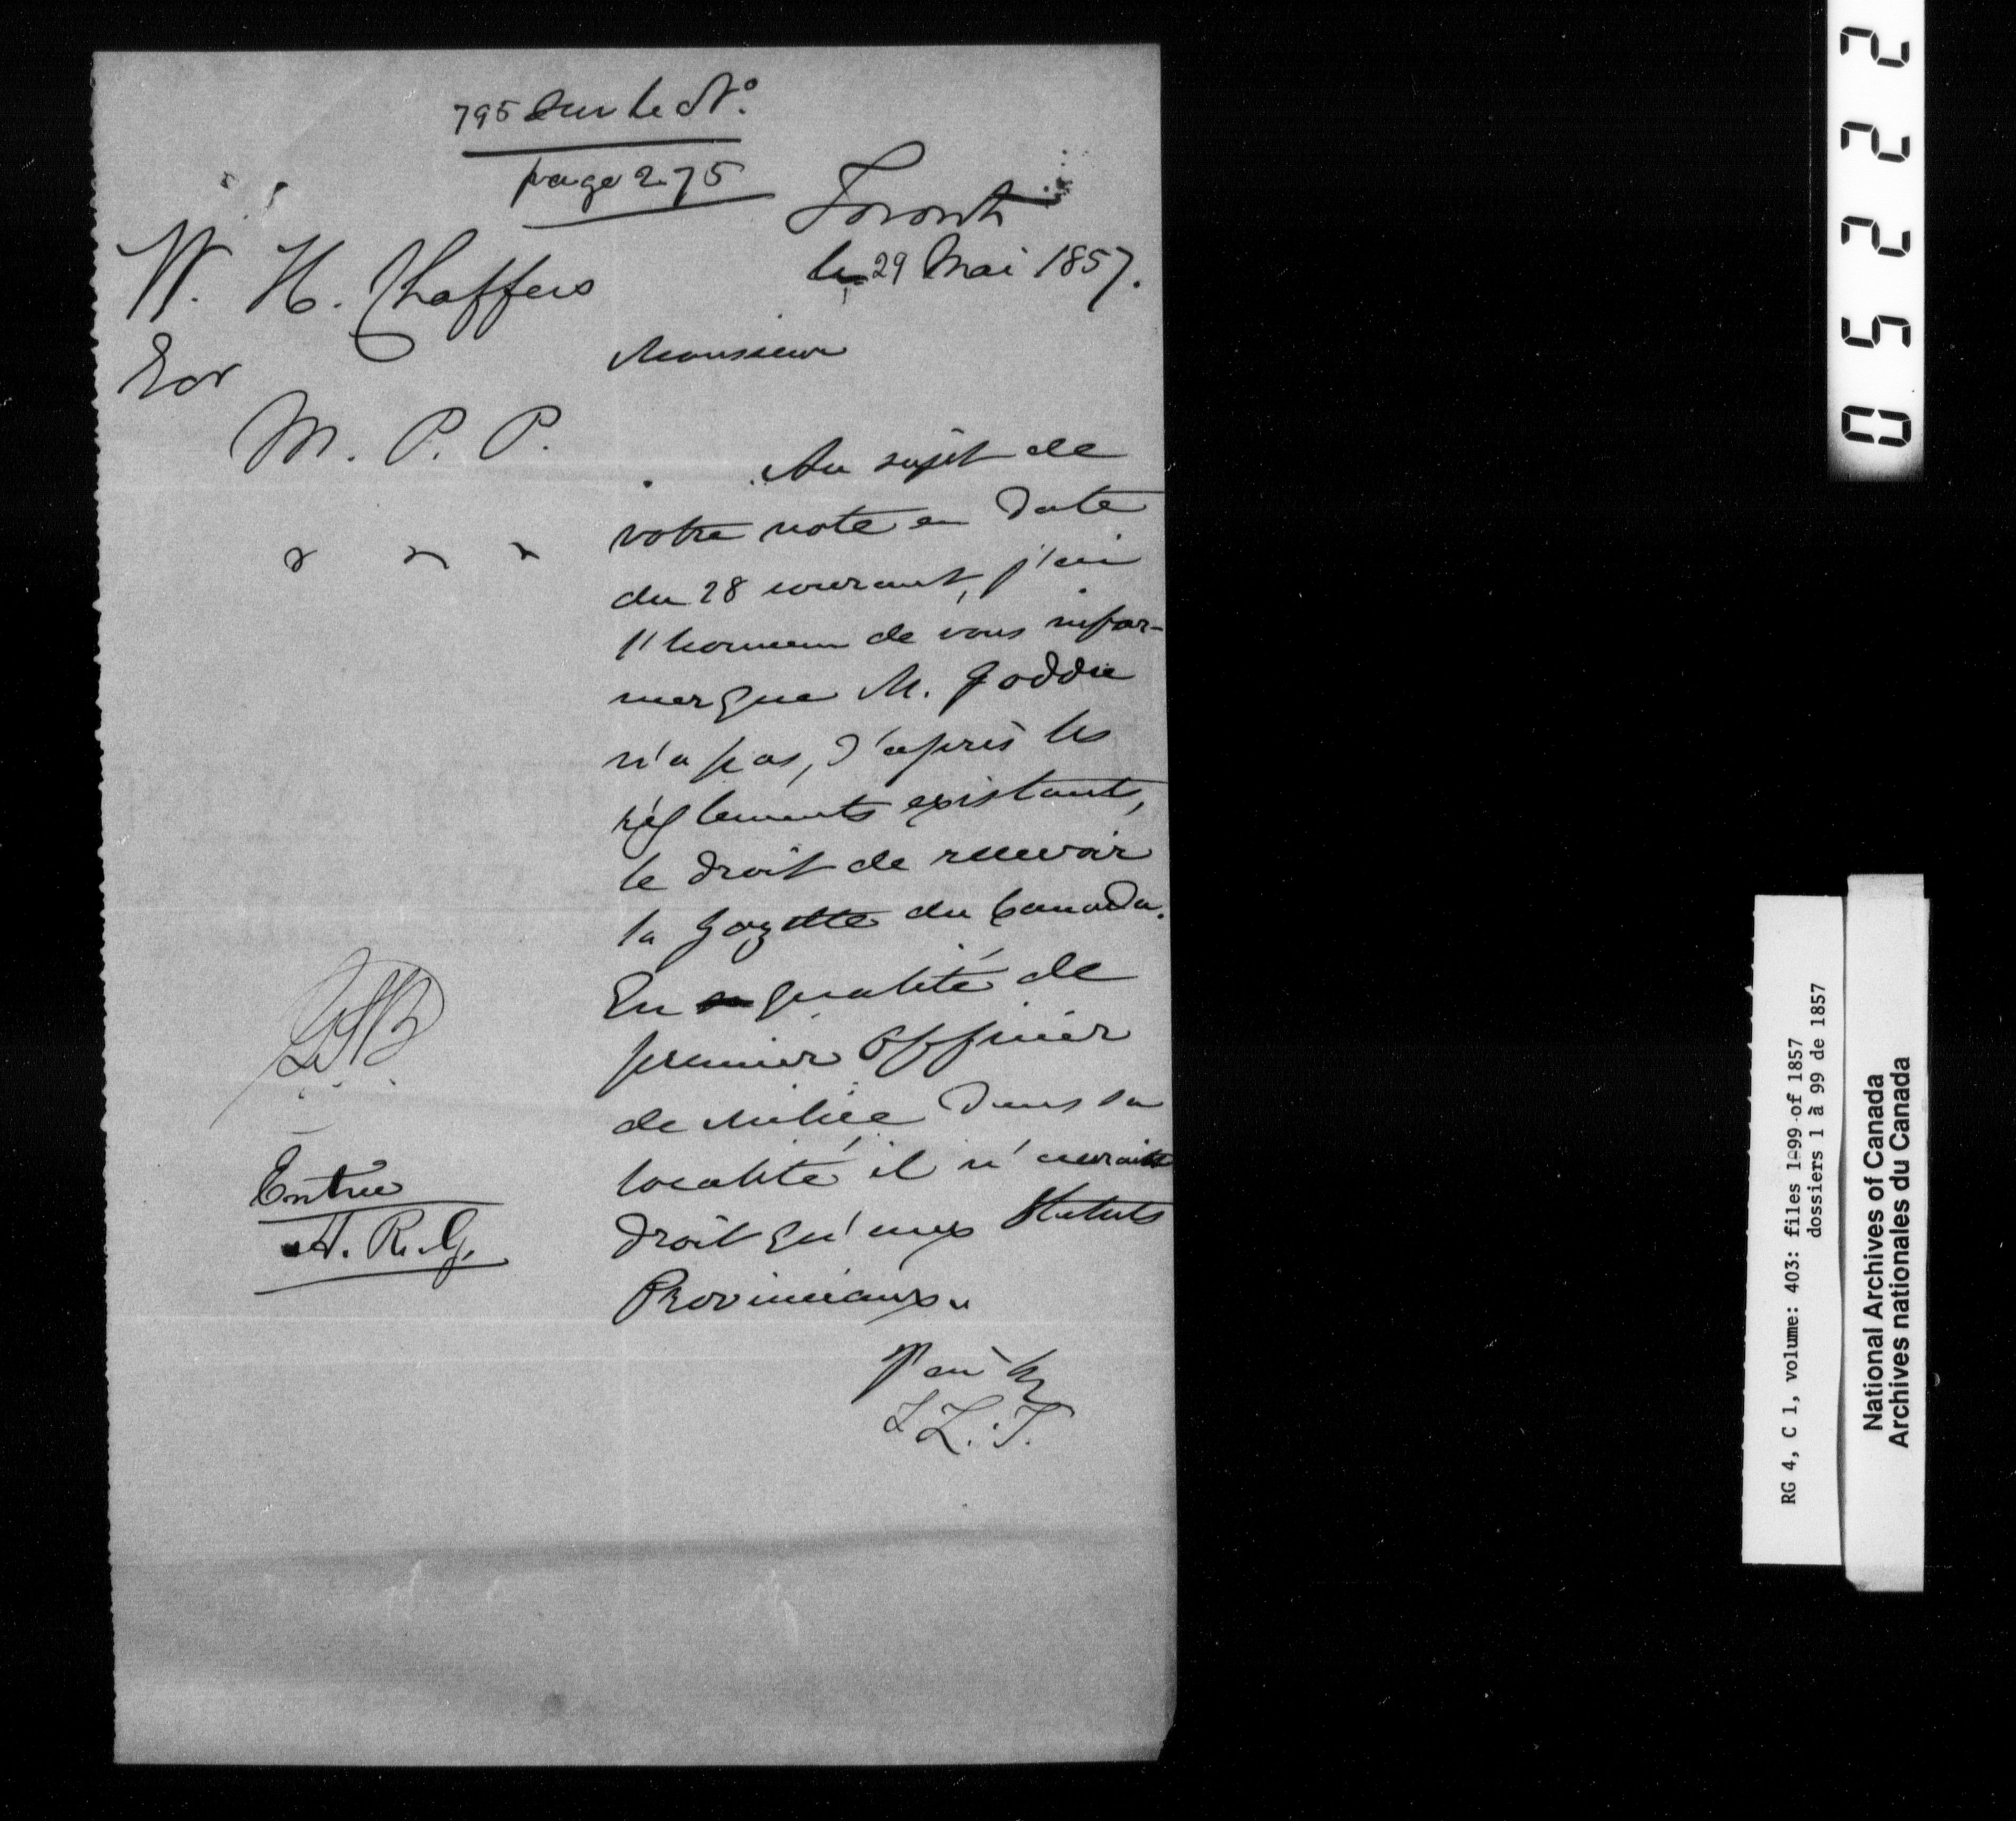 795 sur le No.
page 275
Toronto
le 29 Mai 1857.
W. H. Chaffers
Ecr
M. P. P.
Monsieur
Au sujet de
votre note en date
du 28 courant, j'ai
l'honneur de vous infor-
mer que M. Goddu
n'a pas, d'après les
réglements existants,
le droit de recevoir
la Gazette du Canada.
En qualité de
premier Officier
de Milice dans sa
localité il n'aurait
droit qu'aux Statuts
Provinciaux.
J'ai &
Entrée
A. R. G.
05222
RG 4, C 1, volume: 403: files 1-99 of 1857
dossiers 1 à 99 de 1857
National Archives of Canada
Archives nationales du Canada